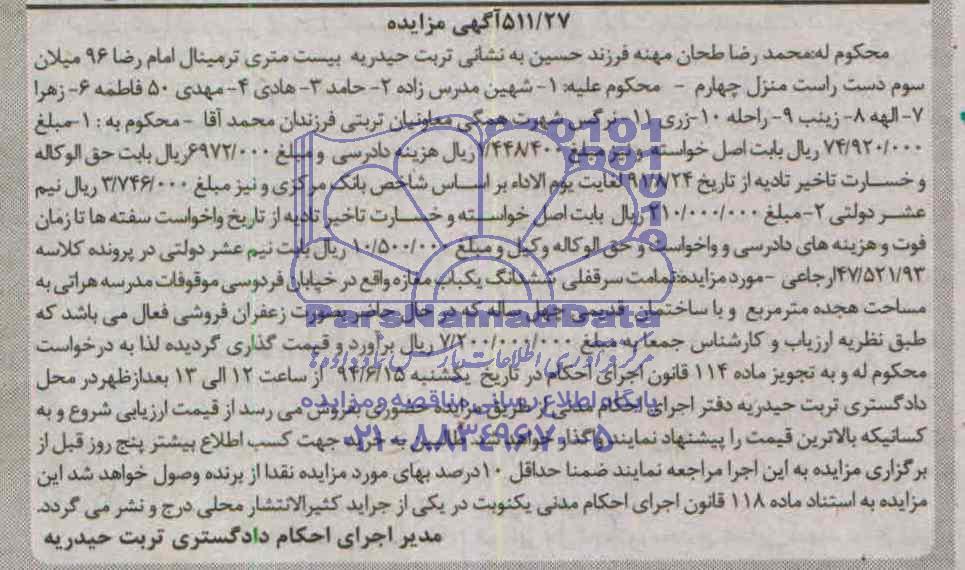 ۵۱۱/۲۷آگهی مزایده
محکوم له:محمد رضا طحان مهنه فرزند حسین به نشانی تربت حیدریه بیست متری ترمینال امام رضا ۹۶ میلان
سوم دست راست منزل چهارم - محکوم علیه: ۱- شهین مدرس زاده ۲- حامد ۳- هادی ۴- مهدی ۵۰ فاطمه ۶- زهرا
۷- الهه ۸- زینب ۹- راحله ۱۰-زری ۱۱- نرگس شهرت همگی معاونیان تربتی فرزندان محمد آقا - محکوم به : ۱-مبلغ
۷۴/۹۲۰/۰۰۰ ریال بابت اصل خواسته و نیز مبلغ ۱/۴۴۸/۴۰۰ ریال هزینه دادرسی و مبلغ ۶۹۷۲/۰۰۰ریال بابت حق الوکاله
و خسارت تاخیر تادیه از تاریخ ۹۱/۸/۲۴ لغایت یوم الاداء بر اساس شاخص بانک مرکزی و نیز مبلغ ۳/۷۴۶/۰۰۰ ریال نیم
عشر دولتی ۲-مبلغ ۲۱۰/۰۰۰/۰۰۰ ریال بابت اصل خواسته و خسارت تاخیر تادیه از تاریخ واخواست سفته ها تا زمان
فوت و هزینه های دادرسی و واخواست و حق الوکاله وکیل و مبلغ ۱۰/۵۰۰/۰۰۰ ریال بابت نیم عشر دولتی در پرونده کلاسه
۴۷/۵۲۱/۹۳ارجاعی -مورد مزایده:تمامت سرقفلی ششدانگ یکباب مغازه واقع در خیابان فردوسی موقوفات مدرسه هراتی به
مساحت هجده مترمربع و با ساختمان قدیمی چهل ساله که در حال حاضر بصورت زعفران فروشی فعال می باشد که
طبق نظریه ارزیاب و کارشناس جمعا به مبلغ ۷/۲۰۰/۰۰۰/۰۰۰ ریال برآورد و قیمت گذاری گردیده لذا به درخواست
محکوم له و به تجویز ماده ۱۱۴ قانون اجرای احکام در تاریخ یکشنبه ۹۴/۶/۱۵ از ساعت ۱۲ الی ۱۳ بعدازظهر در محل
دادگستری تربت حیدریه دفتر اجرای احکام مدنی از طریق مزایده حضوری بفروش می رسد از قیمت ارزیابی شروع و به
کسانیکه بالاترین قیمت را پیشنهاد نمایند واگذار خواهد شد. طالبین به خرید جهت کسب اطلاع بیشتر پنج روز قبل از
برگزاری مزایده به این اجرا مراجعه نمایند ضمنا حداقل ۱۰درصد بهای مورد مزایده نقدا از برنده وصول خواهد شد این
مزایده به استناد ماده ۱۱۸ قانون اجرای احکام مدنی یکنوبت در یکی از جراید کثیرالانتشار محلی درج و نشر می گردد.
مدیر اجرای احکام دادگستری تربت حیدریه
ParsNamadData
مرکز فرآوری اطلاعات پارس نماد داده ها
پایگاه اطلاع رسانی مناقصه و مزایده
۰۲۱-۸۸۳۴۹۶۷۰-۵